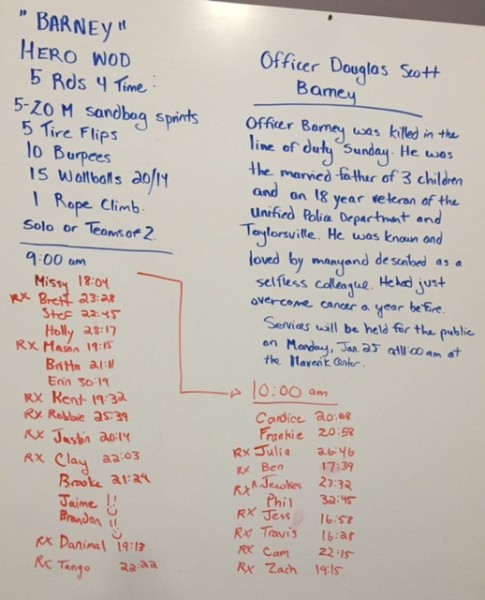 "BARNEY"
HERO WOD
5 Rds 4 Time:
5-20 M sandbag sprints
5 Tire Flips
10 Burpees
15 Wallballs 20/14
1 Rope Climb.
Solo or Teams of 2.
9:00 am
Missy 18:04
RX Brett 23:28
Stef 22:45
Holly 28:17
RX Mason 19:15
Britta 21:11
Erin 30:19
RX Kent 19:32
RX Robbie 25:39
RX Justin 20:14
RX Clay 22:03
Brooke 21:24
Jaime
Brandon
RX Danimal 19:13
RX Tango 22:22
Officer Douglas Scott
Barney
Officer Barney was killed in the
line of duty Sunday. He was
the married father of 3 children
and an 18 year veteran of the
Unified Police Department and
Taylorsville. He was known and
loved by many and described as a
selfless colleague. He had just
overcome cancer a year before.
Services will be held for the public
on Monday, Jan. 25 at 11:00 am at
the Maverik Center.
10:00 am
Candice 20:58
Frankie 20:58
RX Julia 26:46
RX Ben 17:39
RX Jewkes 27:32
Phil 32:45
RX Jess 16:58
RX Travis 16:28
RX Cam 22:15
RX Zach 19:15